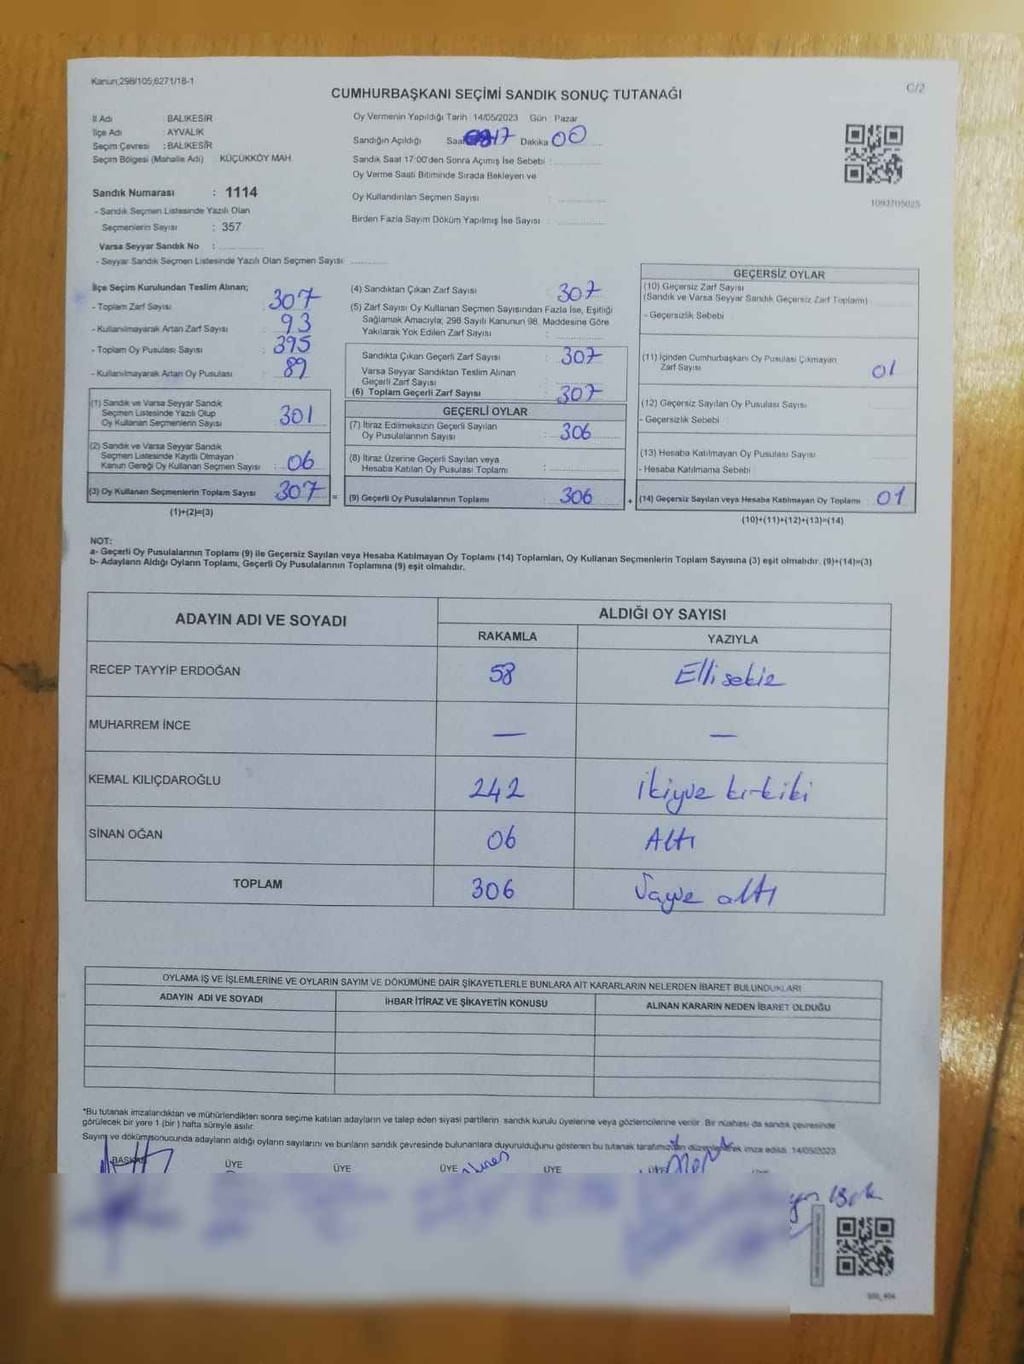 Kanun;298/105;6271/18-1
C/2
CUMHURBAŞKANI SEÇİMİ SANDIK SONUÇ TUTANAĞI
İl Adı : BALIKESİR
İlçe Adı : AYVALIK
Seçim Çevresi : BALIKESİR
Seçim Bölgesi (Mahalle Adı) : KÜÇÜKKÖY MAH.
Sandık Numarası : 1114
- Sandık Seçmen Listesinde Yazılı Olan
Seçmenlerin Sayısı : 357
Varsa Seyyar Sandık No :
- Seyyar Sandık Seçmen Listesinde Yazılı Olan Seçmen Sayısı:
Oy Vermenin Yapıldığı Tarih 14/05/2023 Gün Pazar
Sandığın Açıldığı Saat 17 Dakika 00
Sandık Saat 17:00'den Sonra Açımış İse Sebebi :
Oy Verme Saati Bitiminde Sırada Bekleyen ve
Oy Kullandırılan Seçmen Sayısı :
Birden Fazla Sayım Döküm Yapılmış İse Sayısı :
1093705025
İlçe Seçim Kurulundan Teslim Alınan;
- Toplam Zarf Sayısı : 307
- Kullanılmayarak Artan Zarf Sayısı : 93
- Toplam Oy Pusulası Sayısı : 395
- Kullanılmayarak Artan Oy Pusulası : 89
(1) Sandık ve Varsa Seyyar Sandık
Seçmen Listesinde Yazılı Olup
Oy Kullanan Seçmenlerin Sayısı : 301
(2) Sandık ve Varsa Seyyar Sandık
Seçmen Listesinde Kayıtlı Olmayan
Kanun Gereği Oy Kullanan Seçmen Sayısı : 06
(3) Oy Kullanan Seçmenlerin Toplam Sayısı : 307
(1)+(2)=(3)
(4) Sandıktan Çıkan Zarf Sayısı : 307
(5) Zarf Sayısı Oy Kullanan Seçmen Sayısından Fazla İse, Eşitliği
Sağlamak Amacıyla; 298 Sayılı Kanunun 98. Maddesine Göre
Yakılarak Yok Edilen Zarf Sayısı :
Sandıkta Çıkan Geçerli Zarf Sayısı : 307
Varsa Seyyar Sandıktan Teslim Alınan
Geçerli Zarf Sayısı :
(6) Toplam Geçerli Zarf Sayısı : 307
GEÇERLİ OYLAR
(7) İtiraz Edilmeksizin Geçerli Sayılan
Oy Pusulalarının Sayısı : 306
(8) İtiraz Üzerine Geçerli Sayılan veya
Hesaba Katılan Oy Pusulası Toplamı :
= (9) Geçerli Oy Pusulalarının Toplamı : 306
GEÇERSİZ OYLAR
(10) Geçersiz Zarf Sayısı
(Sandık ve Varsa Seyyar Sandık Geçersiz Zarf Toplamı)
- Geçersizlik Sebebi :
(11) İçinden Cumhurbaşkanı Oy Pusulası Çıkmayan
Zarf Sayısı : 01
(12) Geçersiz Sayılan Oy Pusulası Sayısı :
- Geçersizlik Sebebi :
(13) Hesaba Katılmayan Oy Pusulası Sayısı :
- Hesaba Katılmama Sebebi :
+ (14) Geçersiz Sayılan veya Hesaba Katılmayan Oy Toplamı : 01
(10)+(11)+(12)+(13)=(14)
NOT:
a- Geçerli Oy Pusulalarının Toplamı (9) ile Geçersiz Sayılan veya Hesaba Katılmayan Oy Toplamı (14) Toplamları, Oy Kullanan Seçmenlerin Toplam Sayısına (3) eşit olmalıdır. (9)+(14)=(3)
b- Adayların Aldığı Oyların Toplamı, Geçerli Oy Pusulalarının Toplamına (9) eşit olmalıdır.
ADAYIN ADI VE SOYADI
ALDIĞI OY SAYISI
RAKAMLA YAZIYLA
RECEP TAYYİP ERDOĞAN 58 Elli sekiz
MUHARREM İNCE — —
KEMAL KILIÇDAROĞLU 242 ikiyüz kırkiki
SİNAN OĞAN 06 Altı
TOPLAM 306 üçyüz altı
OYLAMA İŞ VE İŞLEMLERİNE VE OYLARIN SAYIM VE DÖKÜMÜNE DAİR ŞİKAYETLERLE BUNLARA AİT KARARLARIN NELERDEN İBARET BULUNDUKLARI
ADAYIN ADI VE SOYADI İHBAR İTİRAZ VE ŞİKAYETİN KONUSU ALINAN KARARIN NEDEN İBARET OLDUĞU
*Bu tutanak imzalandıktan ve mühürlendikten sonra seçime katılan adayların ve talep eden siyasi partilerin sandık kurulu üyelerine veya gözlemcilerine verilir. Bir nüshası da sandık çevresinde
görülecek bir yere 1 (bir) hafta süreyle asılır.
Sayım ve döküm sonucunda adayların aldığı oyların sayılarını ve bunların sandık çevresinde bulunanlara duyurulduğunu gösteren bu tutanak tarafımızdan düzenlenerek imza edildi. 14/05/2023
BAŞKAN ÜYE ÜYE ÜYE ÜYE